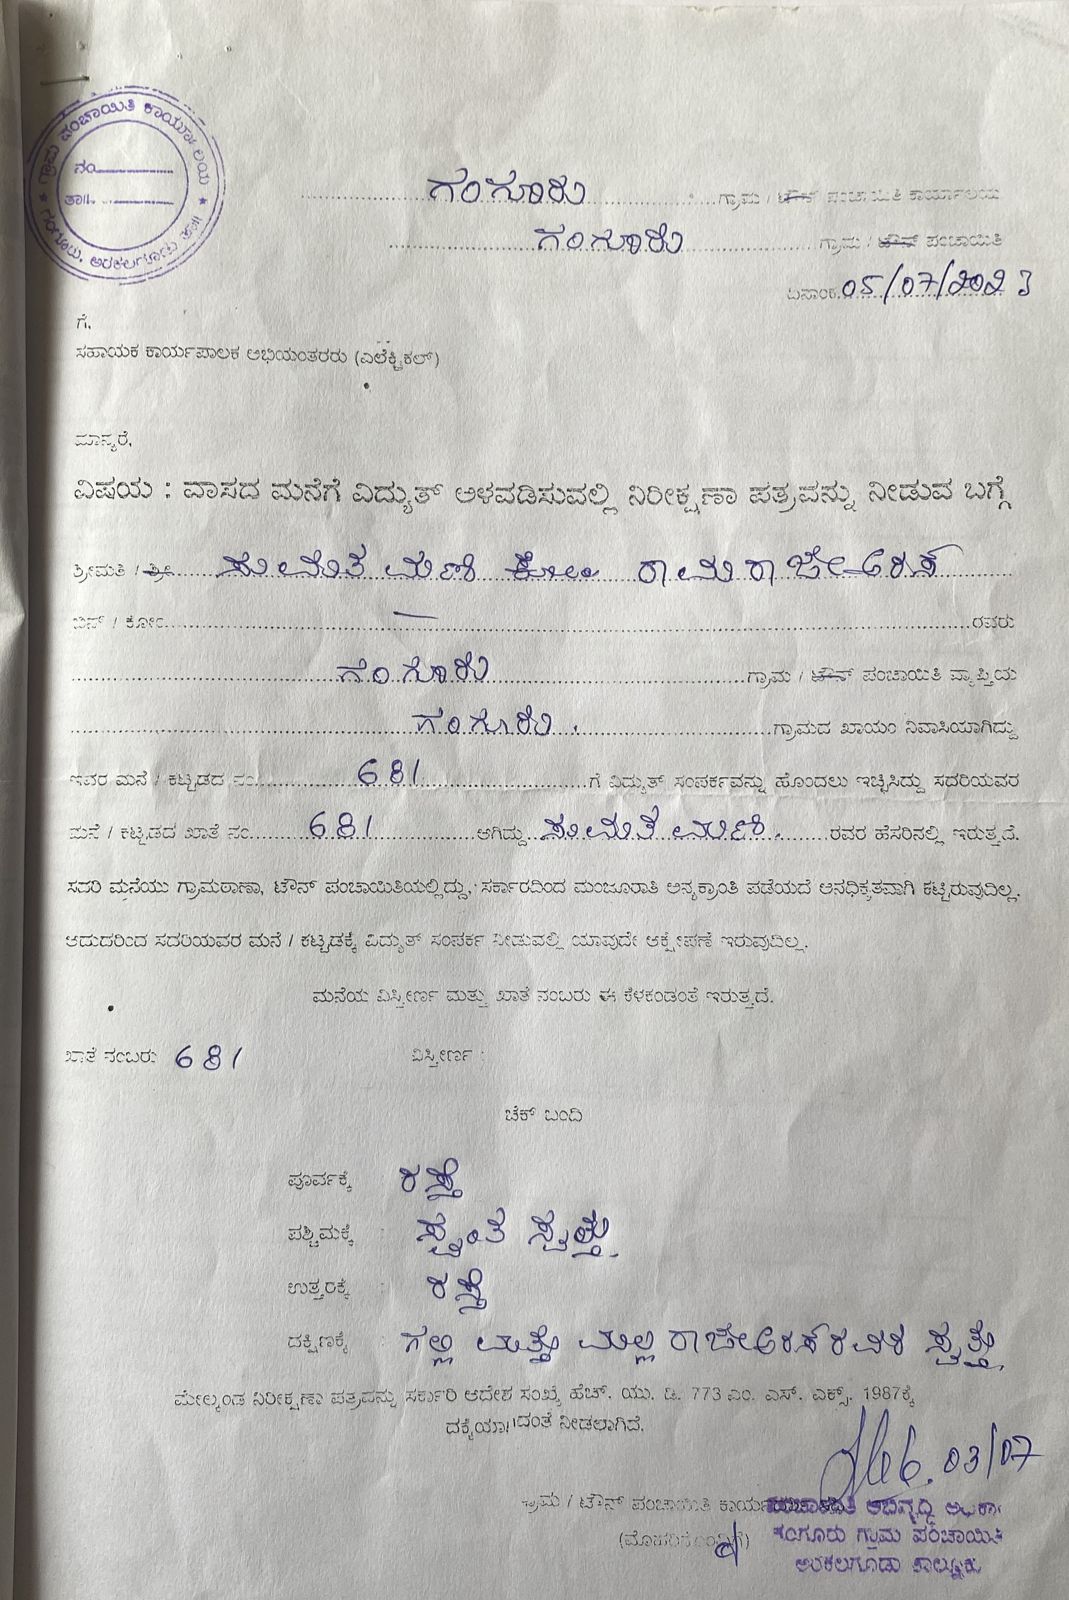 ಗ್ರಾಮ ಪಂಚಾಯಿತಿ ಕಾರ್ಯಾಲಯ
ನಂ
ತಾ॥
ಗಂಗೂರು, ಅರಕಲಗೂಡು ತಾ॥
ಗಂಗೂರು ಗ್ರಾಮ / ಟೌನ್ ಪಂಚಾಯಿತಿ ಕಾರ್ಯಾಲಯ
ಗಂಗೂರು ಗ್ರಾಮ / ಟೌನ್ ಪಂಚಾಯಿತಿ
ದಿನಾಂಕ 05/07/2023
ಗೆ,
ಸಹಾಯಕ ಕಾರ್ಯಪಾಲಕ ಅಭಿಯಂತರರು (ಎಲೆಕ್ಟ್ರಿಕಲ್)
ಮಾನ್ಯರೆ,
ವಿಷಯ : ವಾಸದ ಮನೆಗೆ ವಿದ್ಯುತ್ ಅಳವಡಿಸುವಲ್ಲಿ ನಿರೀಕ್ಷಣಾ ಪತ್ರವನ್ನು ನೀಡುವ ಬಗ್ಗೆ
ಶ್ರೀಮತಿ / ಶ್ರೀ ಕೋಂ
ಬಿನ್ / ಕೋಂ ರವರು
ಗಂಗೂರು ಗ್ರಾಮ / ಟೌನ್ ಪಂಚಾಯಿತಿ ವ್ಯಾಪ್ತಿಯ
ಗಂಗೂರು ಗ್ರಾಮದ ಖಾಯಂ ನಿವಾಸಿಯಾಗಿದ್ದು
ಇವರ ಮನೆ / ಕಟ್ಟಡದ ನಂ 681 ಗೆ ವಿದ್ಯುತ್ ಸಂಪರ್ಕವನ್ನು ಹೊಂದಲು ಇಚ್ಛಿಸಿದ್ದು ಸದರಿಯವರ
ಮನೆ / ಕಟ್ಟಡದ ಖಾತೆ ನಂ 681 ಆಗಿದ್ದು ರವರ ಹೆಸರಿನಲ್ಲಿ ಇರುತ್ತದೆ.
ಸದರಿ ಮನೆಯು ಗ್ರಾಮಠಾಣಾ, ಟೌನ್ ಪಂಚಾಯಿತಿಯಲ್ಲಿದ್ದು, ಸರ್ಕಾರದಿಂದ ಮಂಜೂರಾತಿ ಅನ್ಯಕ್ರಾಂತಿ ಪಡೆಯದೆ ಅನಧಿಕೃತವಾಗಿ ಕಟ್ಟಿರುವುದಿಲ್ಲ.
ಆದುದರಿಂದ ಸದರಿಯವರ ಮನೆ / ಕಟ್ಟಡಕ್ಕೆ ವಿದ್ಯುತ್ ಸಂಪರ್ಕ ನೀಡುವಲ್ಲಿ ಯಾವುದೇ ಆಕ್ಷೇಪಣೆ ಇರುವುದಿಲ್ಲ.
ಮನೆಯ ವಿಸ್ತೀರ್ಣ ಮತ್ತು ಖಾತೆ ನಂಬರು ಈ ಕೆಳಕಂಡಂತೆ ಇರುತ್ತದೆ.
ಖಾತೆ ನಂಬರು 681 ವಿಸ್ತೀರ್ಣ :
ಚೆಕ್ ಬಂದಿ
ಪೂರ್ವಕ್ಕೆ ರಸ್ತೆ
ಪಶ್ಚಿಮಕ್ಕೆ : ಸ್ವಂತ ಸ್ವತ್ತು
ಉತ್ತರಕ್ಕೆ : ರಸ್ತೆ
ದಕ್ಷಿಣಕ್ಕೆ : ಗಲ್ಲಿ ಮತ್ತು ಸ್ವತ್ತು
ಮೇಲ್ಕಂಡ ನಿರೀಕ್ಷಣಾ ಪತ್ರವನ್ನು ಸರ್ಕಾರಿ ಆದೇಶ ಸಂಖ್ಯೆ ಹೆಚ್. ಯು. ಡಿ. 773 ಎಂ. ಎಸ್. ಎಕ್ಸ್. 1987ಕ್ಕೆ
ನೀಡಲಾಗಿದೆ.
03/07
ಗ್ರಾಮ / ಟೌನ್ ಪಂಚಾಯಿತಿ
ಪಂಚಾಯಿತಿ ಅಭಿವೃದ್ಧಿ ಅಧಿಕಾರಿ
ಗಂಗೂರು ಗ್ರಾಮ ಪಂಚಾಯಿತಿ
ಅರಕಲಗೂಡು ತಾಲ್ಲೂಕು